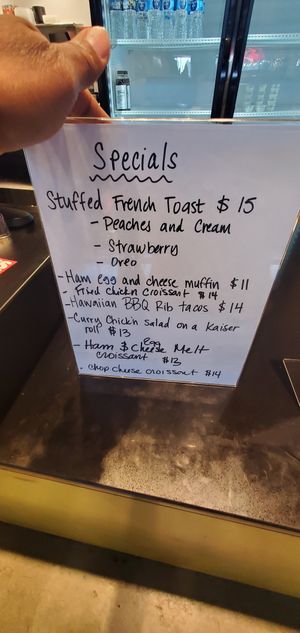 Specials
Stuffed French Toast $15
- Peaches and Cream
- Strawberry
- Oreo
- Ham egg and cheese muffin $11
- Fried chick'n croissant $14
- Hawaiian BBQ Rib tacos $14
- Curry Chick'n Salad on a Kaiser
roll $13
- Ham $ Egg Cheese Melt
croissant $13
- Chop cheese croissant $14